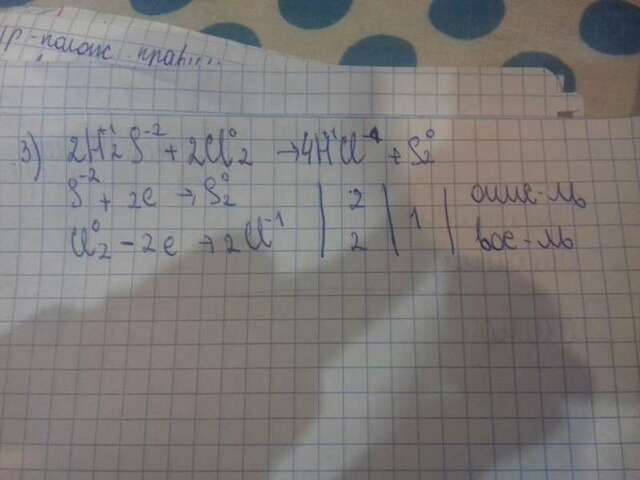 пр-полож прав...
3) 2H₂⁺¹S⁻² + 2Cl₂⁰ → 4H⁺¹Cl⁻¹ + S₂⁰
S⁻² + 2e → S₂⁰ | 2 | 1 | окис-ль
Cl₂⁰ - 2e → 2Cl⁻¹ | 2 | вос-ль